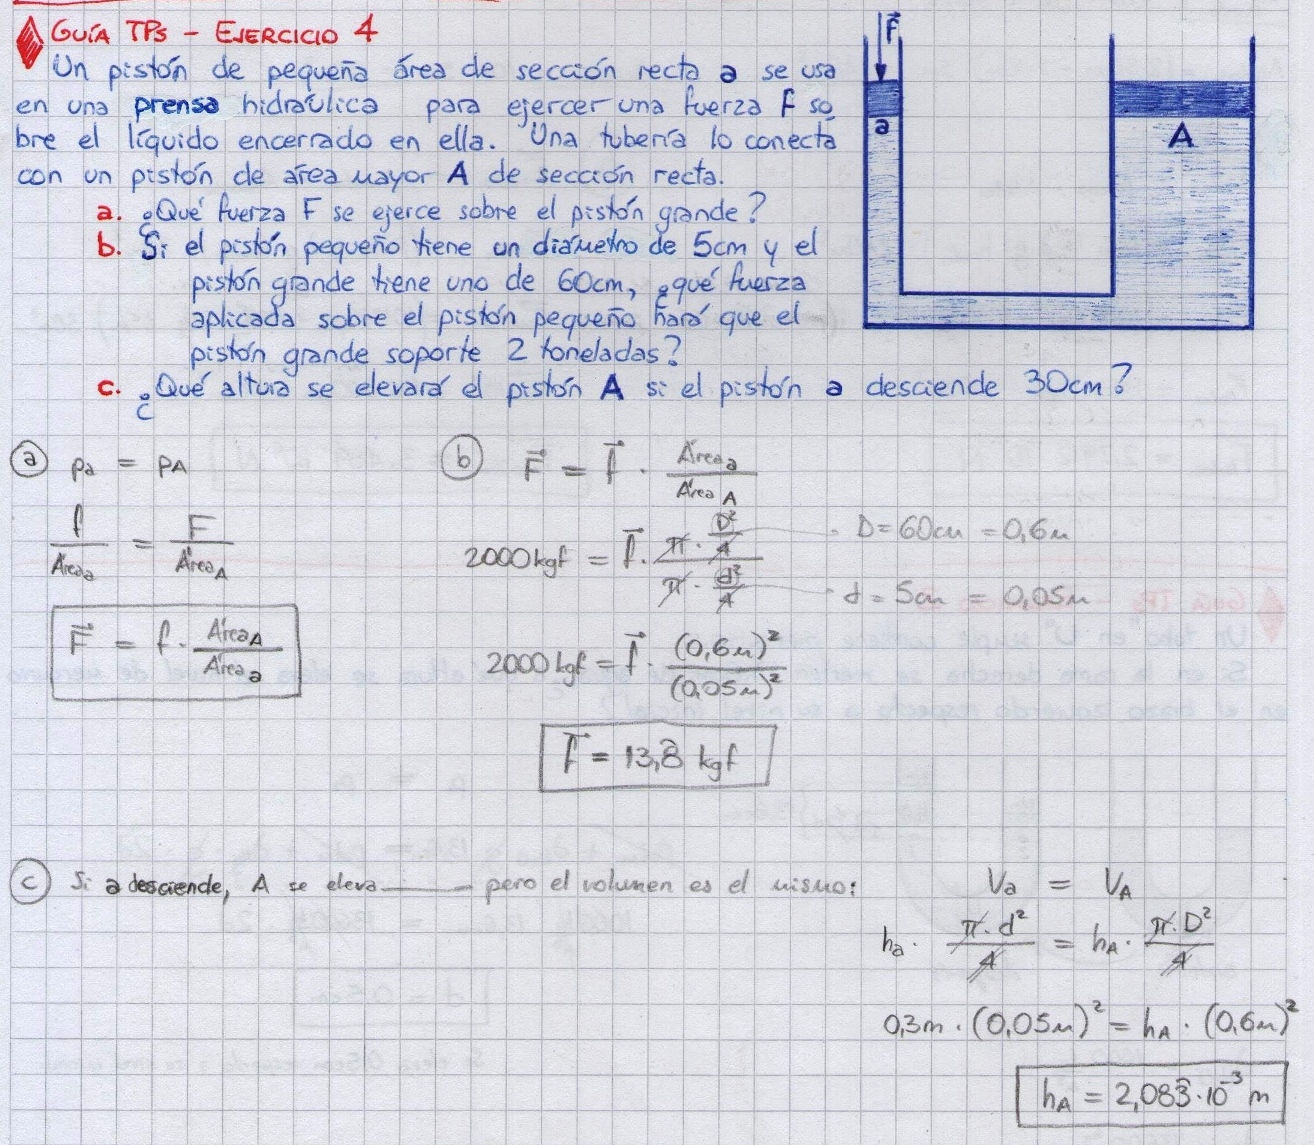 GUÍA TPs - EJERCICIO 4
Un pistón de pequeña área de sección recta a se usa
en una prensa hidraúlica para ejercer una fuerza f so
bre el líquido encerrado en ella. Una tubería lo conecta
con un pistón de área mayor A de sección recta.
a. ¿Qué fuerza F se ejerce sobre el pistón grande?
b. Si el pistón pequeño tiene un diámetro de 5cm y el
pistón grande tiene uno de 60cm, ¿qué fuerza
aplicada sobre el pistón pequeño hará que el
pistón grande soporte 2 toneladas?
c. ¿Qué altura se elevará el pistón A si el pistón a desciende 30cm?
F
a
A
a pa = pA
f/Áreaa = F/ÁreaA
F = f · ÁreaA/Áreaa
b F = f · Áreaa/ÁreaA
2000kgf = f · π · D²/4 / π · d²/4
D = 60cm = 0,6m
d = 5cm = 0,05m
2000kgf = f · (0,6m)²/(0,05m)²
f = 13,8 kgf
c Si a desciende, A se eleva pero el volumen es el mismo:
Va = VA
ha · π·d²/4 = hA · π·D²/4
0,3m · (0,05m)² = hA · (0,6m)²
hA = 2,083·10⁻³ m